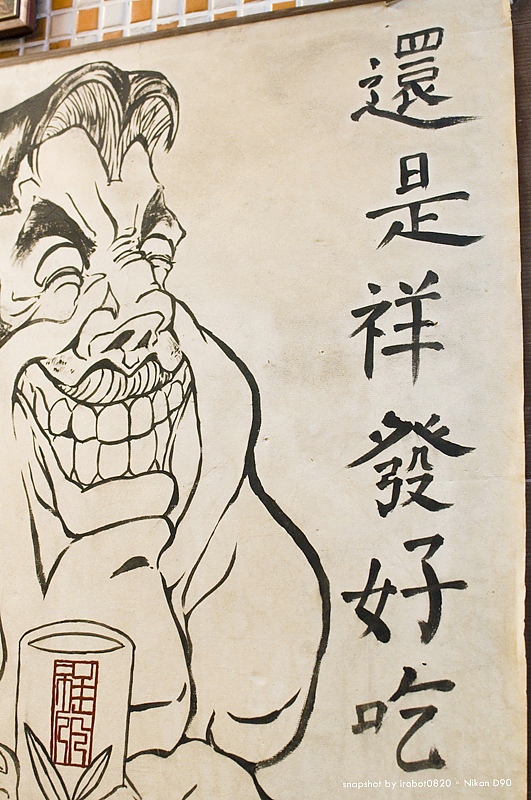 還是祥發好吃
祥發
snapshot by irobot0820 - Nikon D90